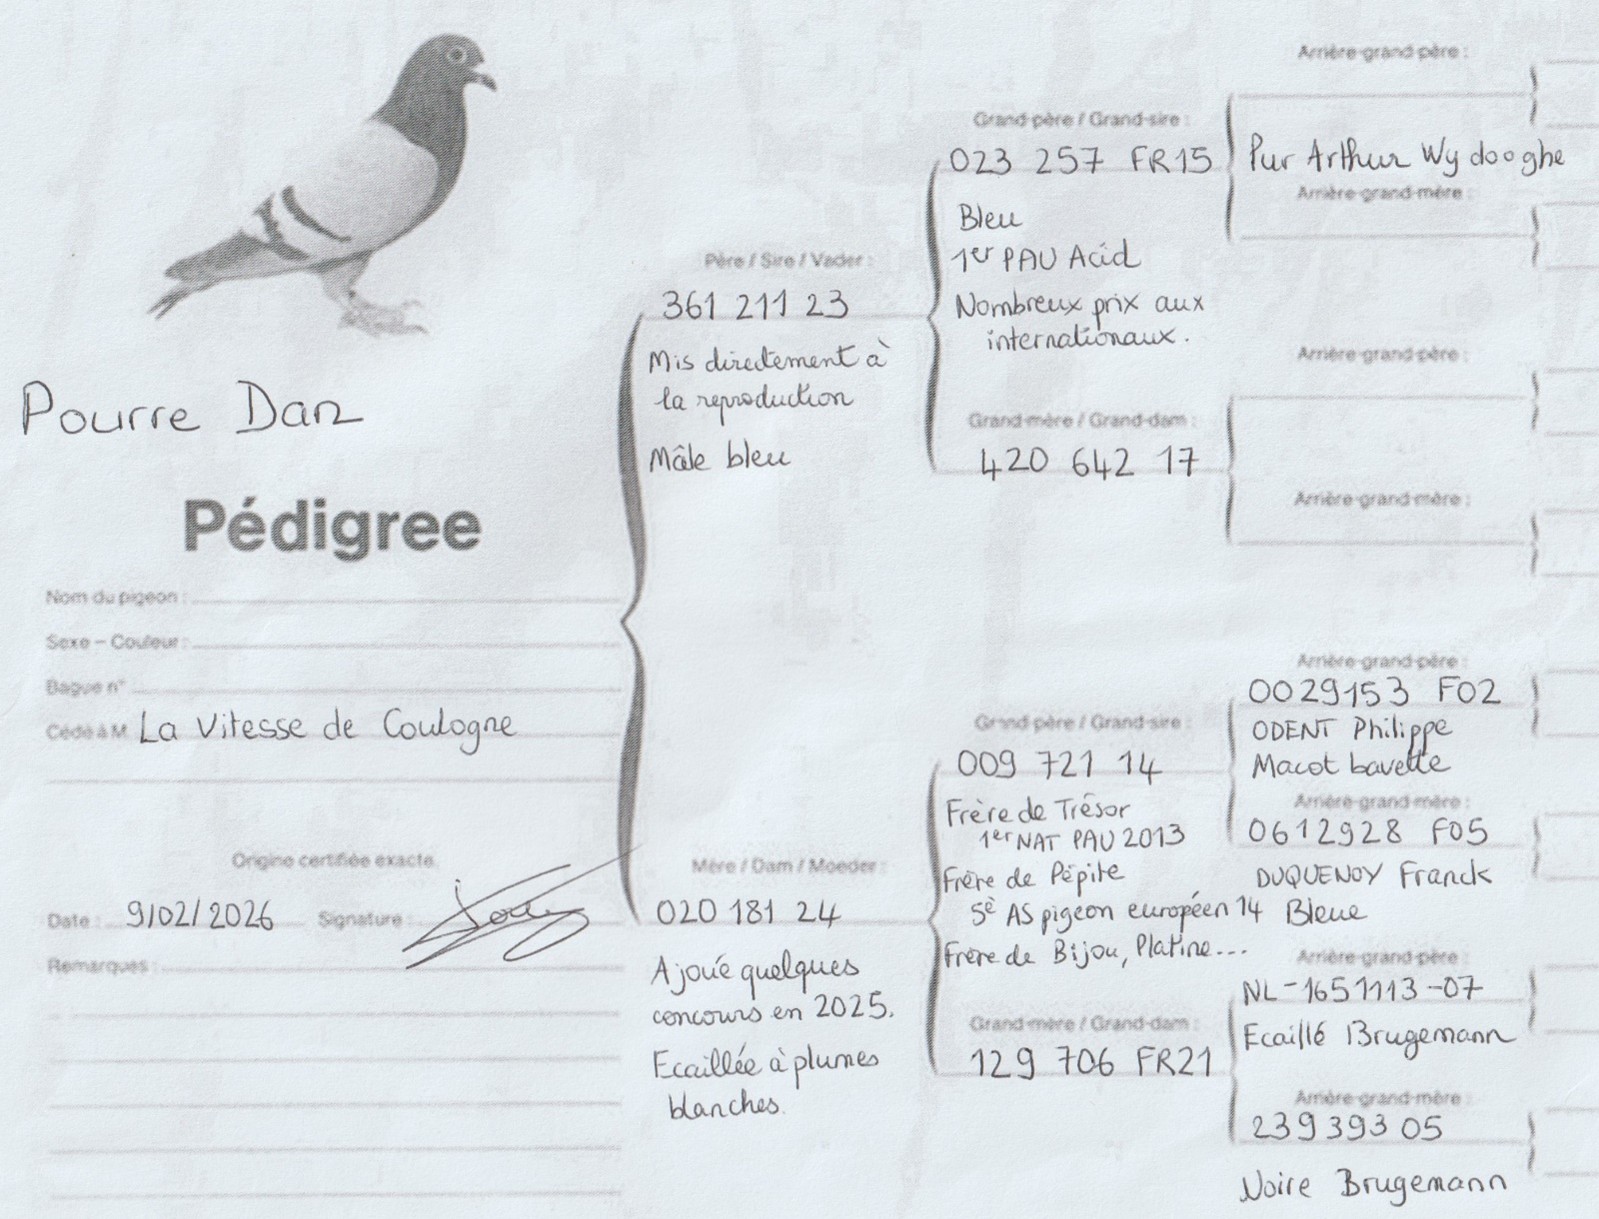 Pourre Dan
Pédigree
Nom du pigeon :
Sexe – Couleur :
Bague n°
Cédé à M. La Vitesse de Coulogne
Origine certifiée exacte.
Date : 9/02/2026 Signature :
Remarques :
Père / Sire / Vader :
361 211 23
Mis directement à
la reproduction
Mâle bleu
Mère / Dam / Moeder :
020 181 24
A joué quelques
concours en 2025.
Ecaillée à plumes
blanches.
Grand-père / Grand-sire :
023 257 FR15
Bleu
1er PAU Acid
Nombreux prix aux
internationaux.
Grand-mère / Grand-dam :
420 642 17
Grand-père / Grand-sire :
009 721 14
Frère de Trésor
1er NAT PAU 2013
Frère de Pépite
5è AS pigeon européen 14
Frère de Bijou, Platine...
Grand-mère / Grand-dam :
129 706 FR21
Arrière-grand-père :
Pur Arthur Wydooghe
Arrière-grand-mère :
Arrière-grand-père :
Arrière-grand-mère :
Arrière-grand-père :
0029153 F02
ODENT Philippe
Macot bavette
Arrière-grand-mère :
0612928 F05
DUQUENOY Franck
Bleue
Arrière-grand-père :
NL-1651113-07
Ecaillé Brugemann
Arrière-grand-mère :
239393 05
Noire Brugemann